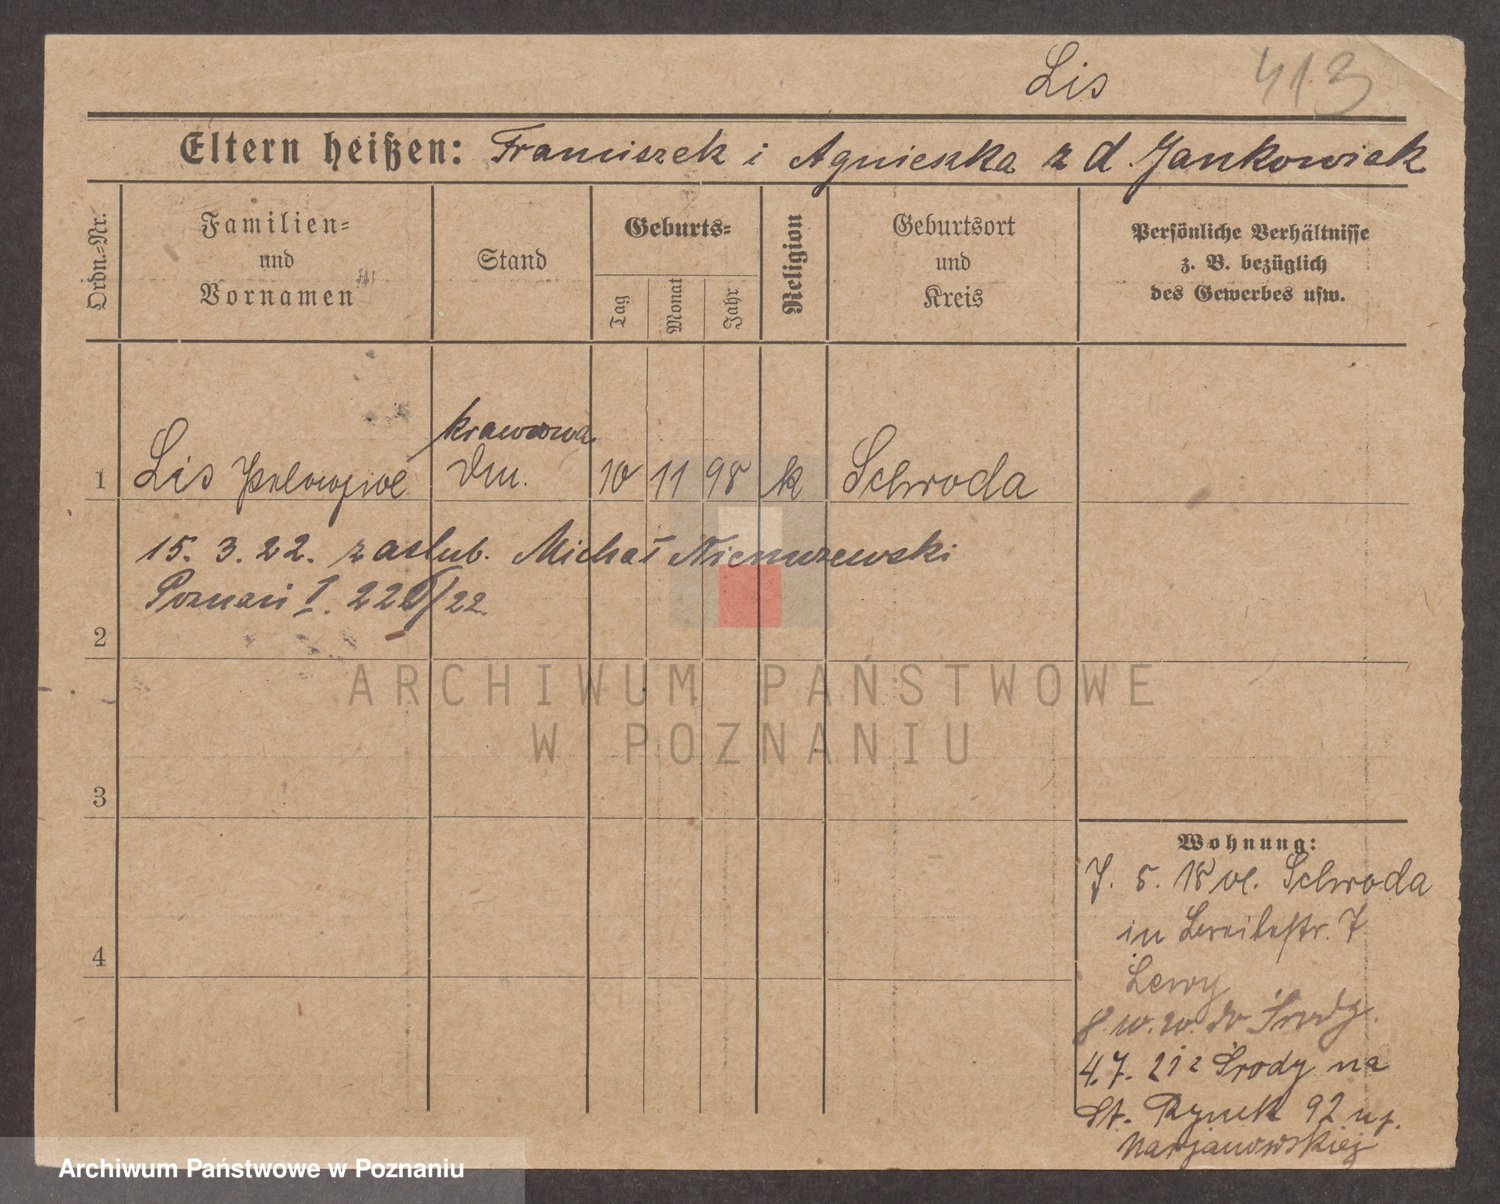 Lis 413
Eltern heißen: Franciszek i Agnieszka z d. Jankowiak
Ordn.-Nr.
Familien- und Vornamen
Stand
Geburts-
Tag
Monat
Jahr
Religion
Geburtsort und Kreis
Persönliche Verhältnisse
z. B. bezüglich
des Gewerbes usw.
krawcowa
1 Lis 10 11 98 k Schroda
15. 3. 22. zaślub. Michał
2 Poznań I. /22
3
4
Wohnung:
7. 5. 18 Schroda
in 7
Lewy
do Środy.
4.7. 21 z Środy na
St. Rynek 92
Marjanowskiej
ARCHIWUM PAŃSTWOWE
W POZNANIU
Archiwum Państwowe w Poznaniu